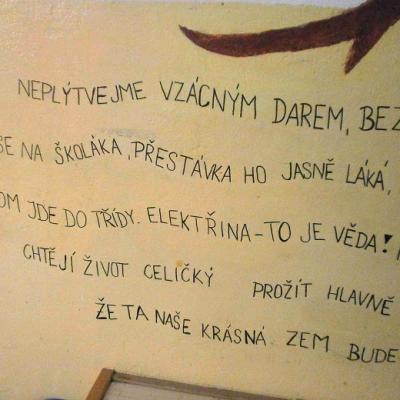 NEPLÝTVEJME VZÁCNÝM DAREM, BEZ
SE NA ŠKOLÁKA, PŘESTÁVKA HO JASNĚ LÁKÁ,
OM JDE DO TŘÍDY. ELEKTŘINA-TO JE VĚDA!
CHTĚJÍ ŽIVOT CELIČKÝ PROŽÍT HLAVNĚ
ŽE TA NAŠE KRÁSNÁ ZEM BUDE